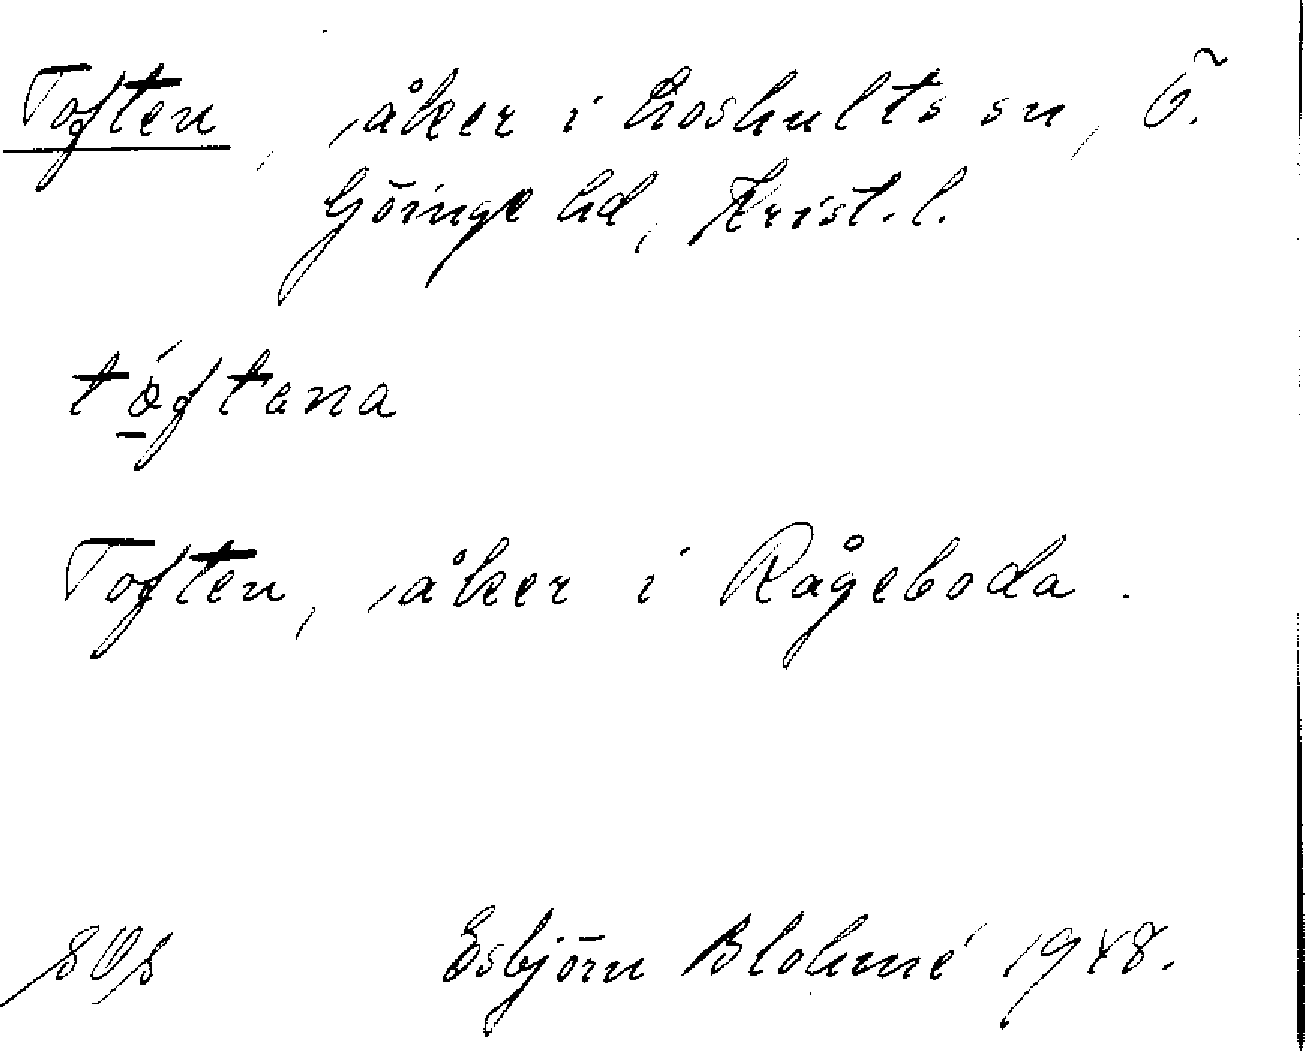 Toften, åker i Loshults sn, Ö.
Göinge hd, Krist. l.
tǿftana
Toften, åker i Rågeboda.
Esbjörn Blohmé 1948.